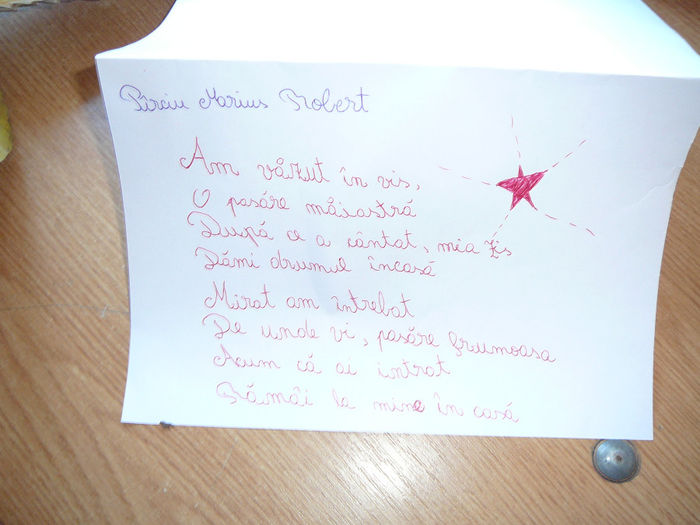 Pîrciu Marius Robert
Am văzut în vis,
O pasăre măiastră
După ce a cântat, mia zis
Dămi drumul încasă
Mirat am întrebat
De unde vi, pasăre frumoasa
Acum că ai intrat
Rămâi la mine în casă